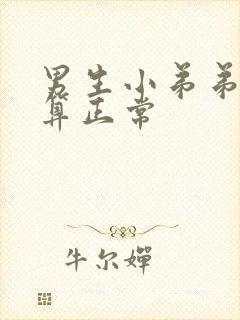 男生小弟弟
算正常
牛尔婵